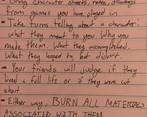 - Bring character sheets, notes, drawings
your games you have played in.
- Take turns telling about a character.
what they meant to you. Why you
made them. What they accomplished.
What they hoped to but didn't.
- Your friends will judge if they
lived a full life or if they were cut
short.
- Either way, BURN ALL MATERIALS
ASSOCIATED WITH THEM